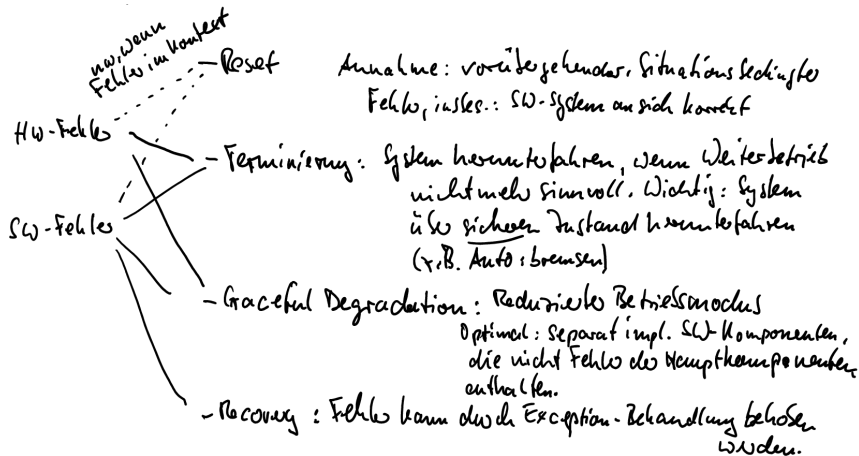 nur, wenn
Fehler im Kontext
- Reset
Annahme: vorübergehender, Situationsbedingter
Fehler, insbes.: SW-System an sich korrekt
HW-Fehler
- Terminierung: System herunterfahren, wenn Weiterbetrieb
nicht mehr sinnvoll. Wichtig: System
über sicheren Zustand herunterfahren
(z.B. Auto: bremsen)
SW-Fehler
- Graceful Degradation: Reduzierter Betriebsmodus
Optimal: Separat impl. SW-Komponenten,
die nicht Fehler der Hauptkomponenten
enthalten.
- Recovery: Fehler kann durch Exception-Behandlung behoben
werden.